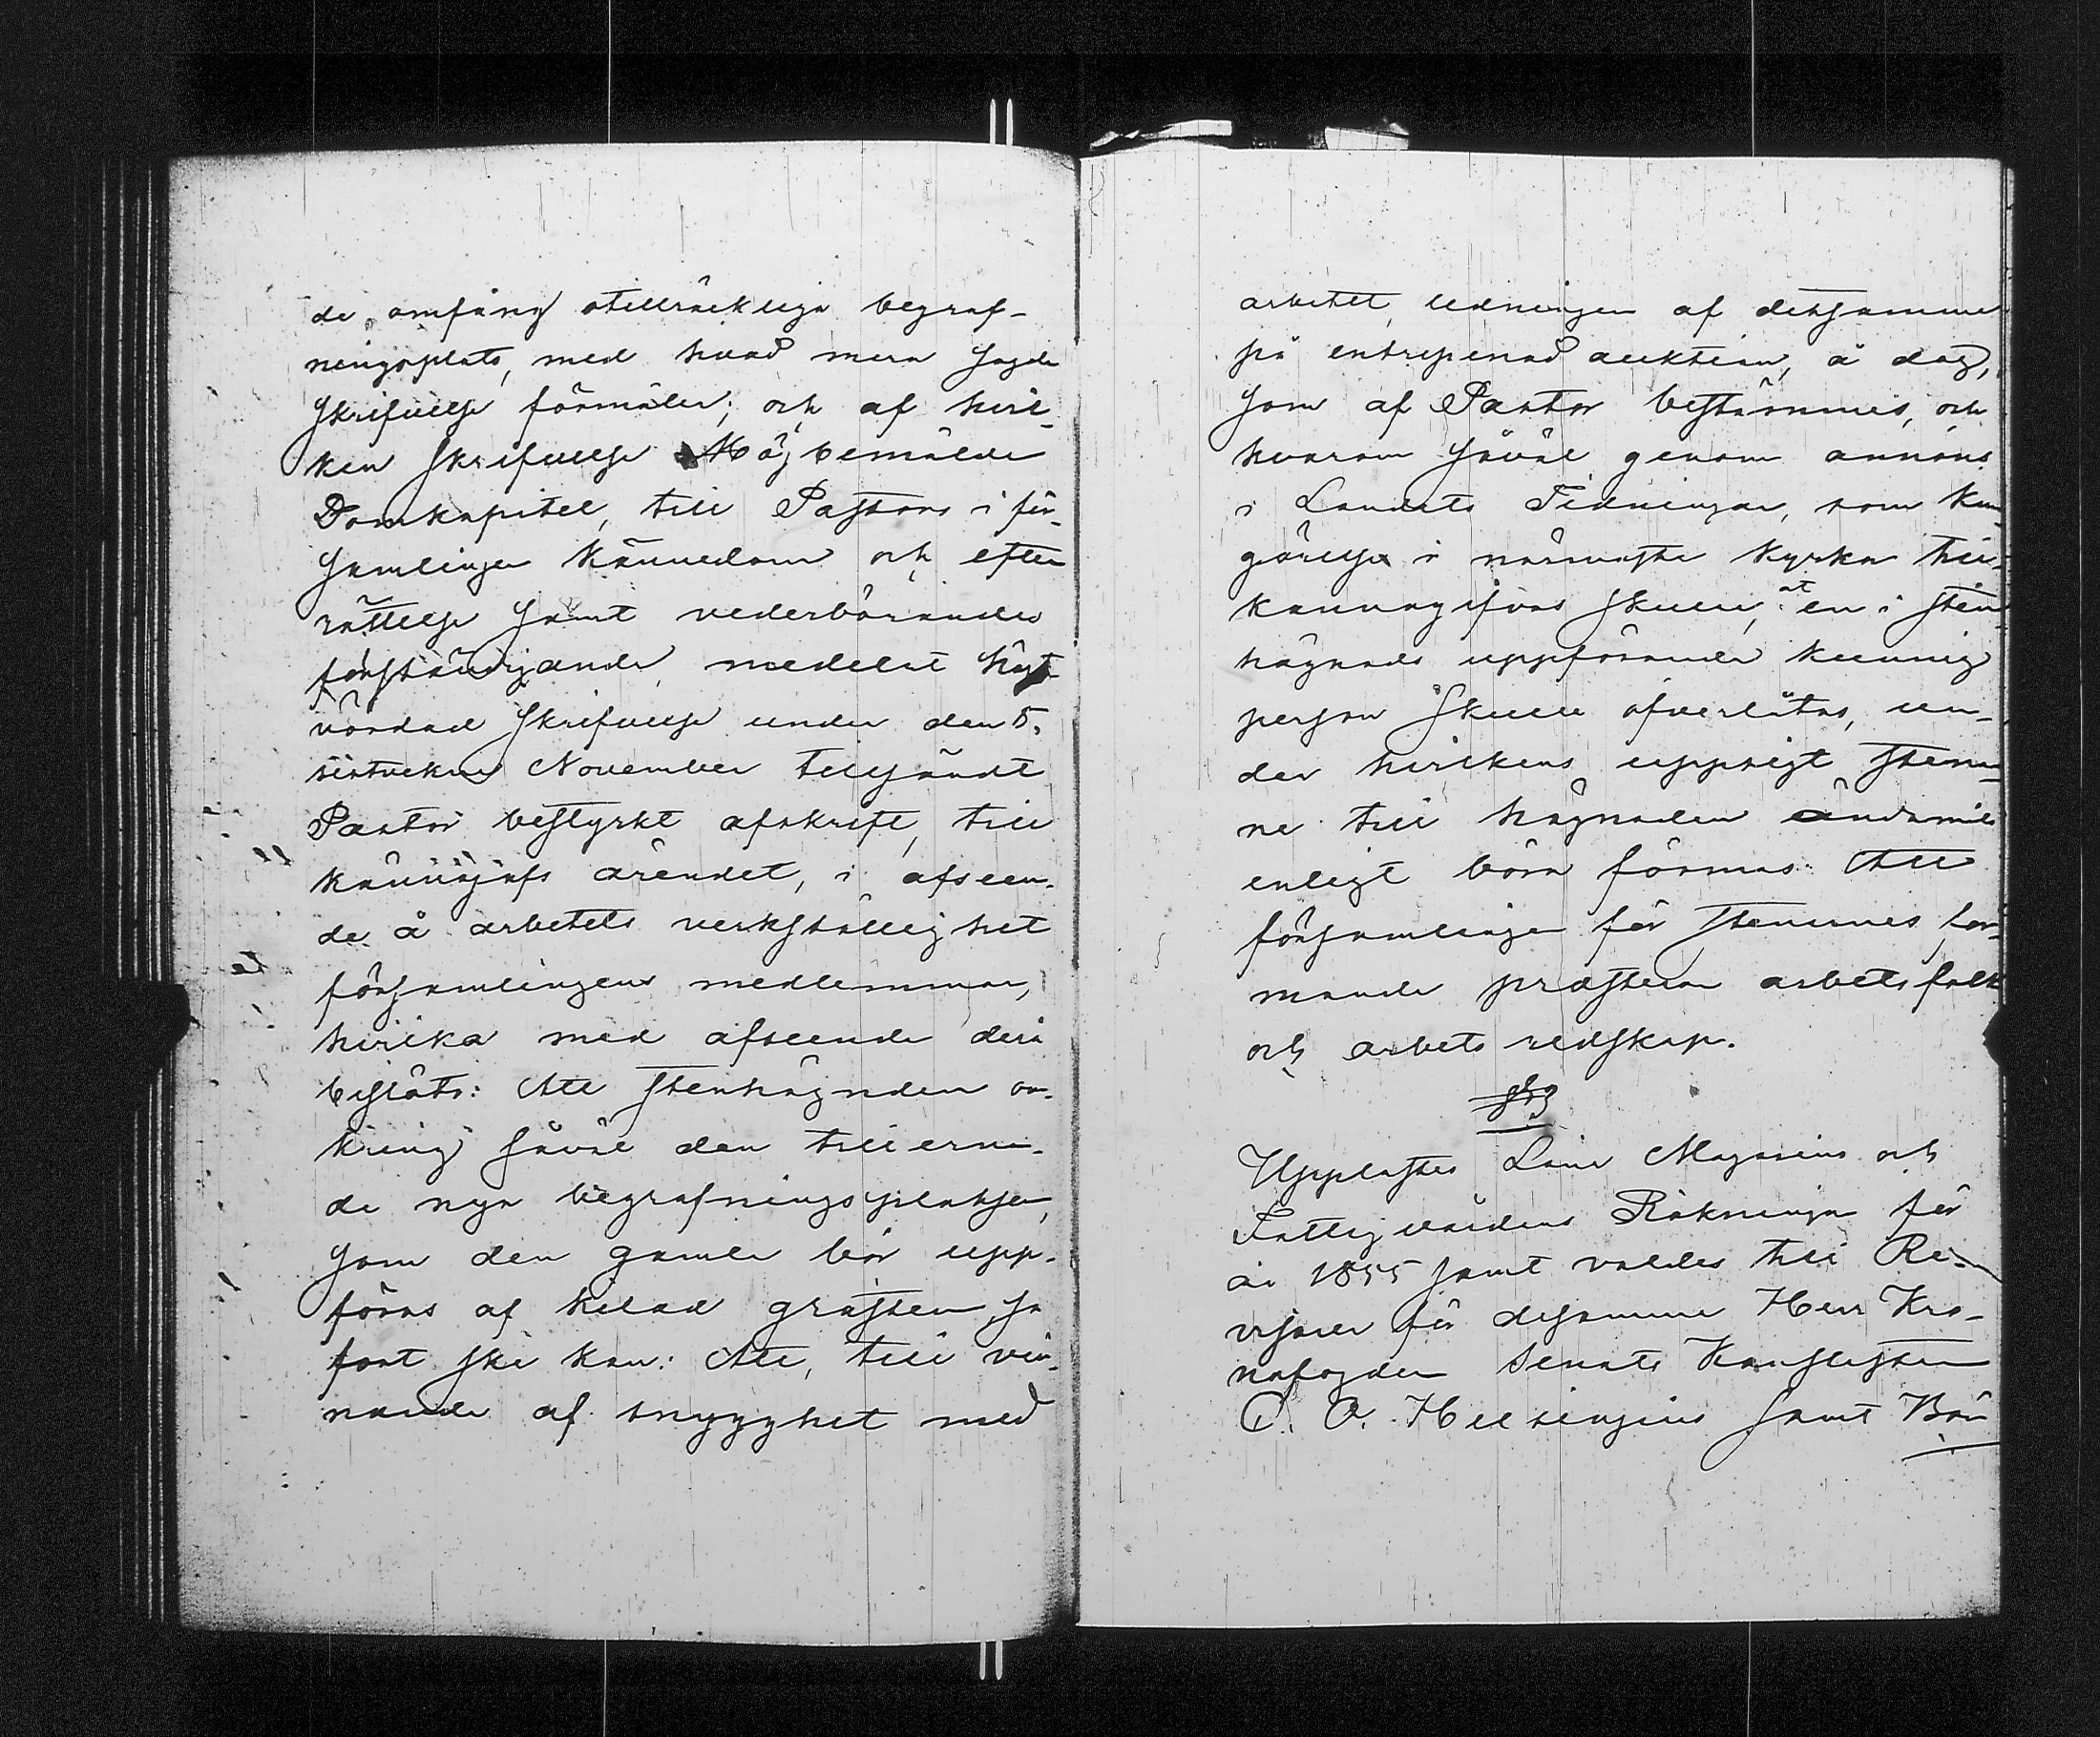 de omfång otillräckliga begraf-
ningsplats, med hvad mera sagde
skrifvelse förmäler; och af hvil-
ken skrifvelse Högbemälde
Domkapitel, till Pastors i för-
samlingen kännedom och efter-
rättelse samt vederbörandes
förständigande, medelst högt
vördad skrifvelse under den 5.
sistvekne November tillsändt
Pastor bestyrkt afskrift, till
känn ärendet, i afseen-
de å arbetets verkställighet
församlingens medlemmar,
hvilka med afseende derå
beslöts: Att stenhägnden om-
kring såväl den tillernade
de nya begrafningsplatsen,
som den gamla bör upp-
föras af kilad gråsten, så
fort ske kan: Att, till vin-
nande af snygghet med
arbetet, ledningen af detsamma
på entrepenad auktion, å dag,
som af Pastor bestämmes, och
hvarom såväl genom annons
i Landets Tidningar, som kun-
görelse i närmaste kyrkor till-
kännagifvas skulle, at en i sten
hägnads uppförande kunnig
person skulle öfverlåtas, un-
der hvilkens uppsigt stenar-
ne till hägnaden ändamåls
enligt böra formas: Att
församlingen för stenernes for-
mande præsterar arbetsfolk
och arbets redskap.
§ 3
Upplästes Låne Magasins och
Fattigvårdens Räkningar för
år 1855 samt valdes till Re-
visorer för desamme Herr Kro-
nofogden Senats Kanslisten
C. A. Helsingius samt Bön